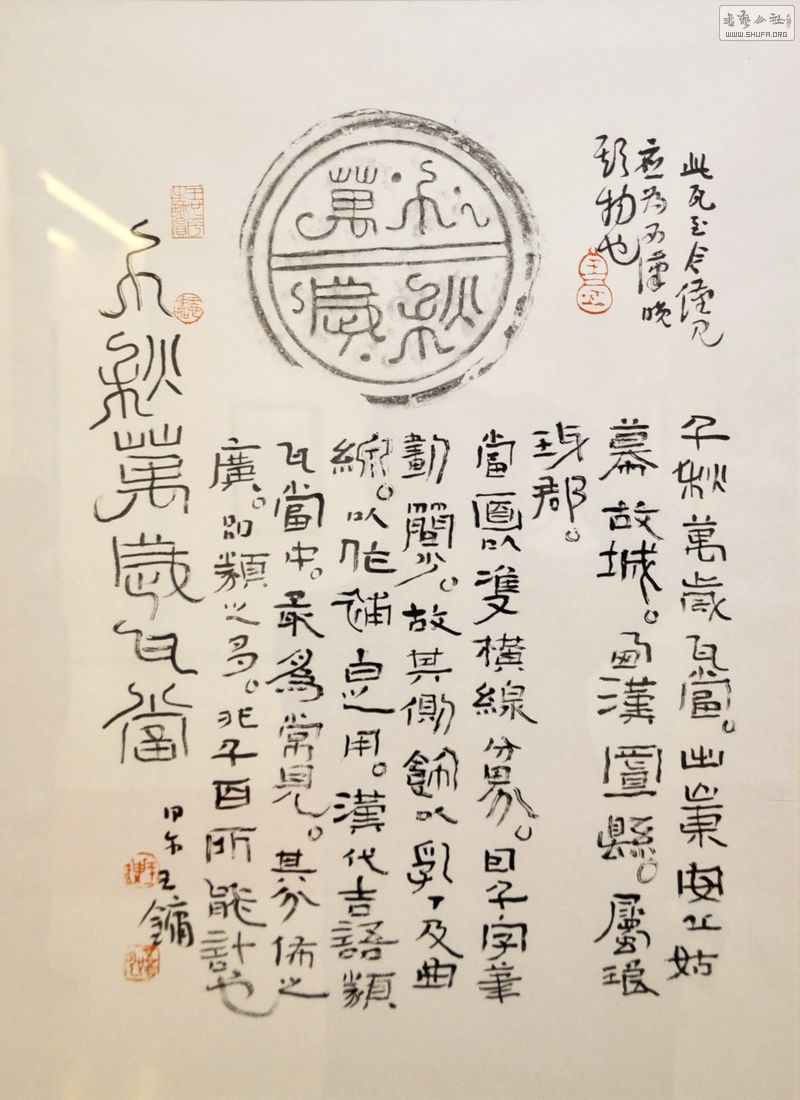 書藝公社
WWW.SHUFA.ORG
此瓦至今僅見
應为西漢晚
期物也
千秋
萬歲
千秋萬歲瓦當。出山東安丘姑
幕故城。西漢置縣。屬琅
琊郡。
當面以雙橫線分界。因千字筆
劃簡少。故其側飾以乳丁及曲
線。以作補白之用。漢代吉語類
瓦當中。最爲常見。其分佈之
廣。品類之多。非千百所能計也
千秋萬歲瓦當
甲午王鏞